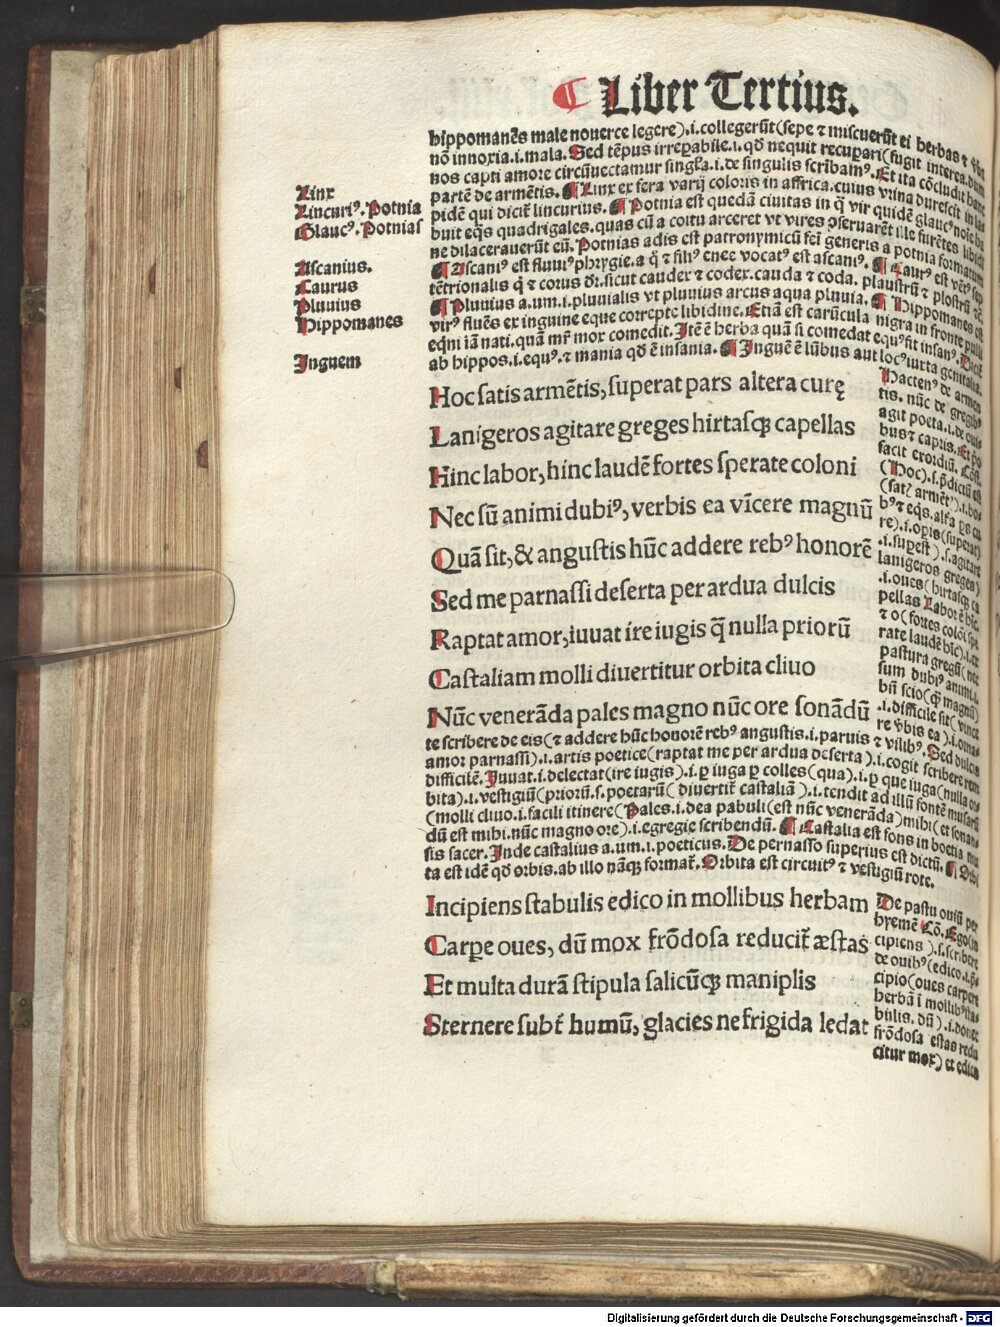 ¶ Liber Tertius.
hippomanẽs male nouerce legere).i.collegerũt(sepe ⁊ miscuerũt ei herbas ⁊
nõ innoxia.i.mala. Sed tẽpus irrepabile.i. qđ nequit recuꝑari(fugit interea.dum
nos capti amore circũuectamur singl̃a.i.de singulis scribamꝰ. Et ita cõcludit hanc
partẽ de armẽtis. ¶ Linx ex fera varij coloris in affrica.cuius vrina durescit in la
pidẽ qui dicit̃ lincurius. ¶ Potnia est quedã ciuitas in q̃ vir quidẽ glaucꝰ noĩe ha
buit eq̃s quadrigales.quas cũ a coitu arceret vt vires ꝯseruarẽt ille furẽtes libidi
ne dilacerauerũt eũ. Potnias adis est patronymicũ fẽi generis a potnia formatum
¶ Ascaniꝰ est fluuiꝰ phrygie.a q̃ ⁊ filiꝰ enee vocatꝰ est ascaniꝰ. ¶ Caurꝰ est vẽtꝰ sep
tẽtrionalis q̃ ⁊ corus dr̃.sicut cauder ⁊ codex.cauda ⁊ coda. plaustrũ ⁊ plostrũ
¶ Pluuius a.um.i.pluuialis vt pluuius arcus aqua pluuia. ¶ Hippomanes est
virꝰ fluẽs ex inguine eque correpte libidine. Etiã est carũcula nigra in fronte pulli
eq̃ni iã nati.quã mr̃ mox comedit. Itẽ ẽ herba quã si comedat equꝰ fit insanꝰ. Dicit̃
ab hippos.i.equꝰ.⁊ mania qđ ẽ insania. ¶ Inguẽ ẽ lũbus aut locꝰ iuxta genitalia.
Linx
Lincuriꝰ. Potnia
Glaucꝰ. Potnias
Ascanius.
Caurus
Pluuius
Hippomanes
Inguem
Hoc satis armẽtis, superat pars altera curę
Lanigeros agitare greges hirtasq; capellas
Hinc labor, hinc laudẽ fortes sperate coloni
Nec sũ animi dubiꝰ, verbis ea vĩcere magnũ
Quã sit, & angustis hũc addere rebꝰ honorẽ
Sed me parnassi deserta per ardua dulcis
Raptat amor, iuuat ire iugis q̃ nulla priorũ
Castaliam molli diuertitur orbita cliuo
Nũc venerãda pales magno nũc ore sonãdũ
Hactenꝰ de armen
tis. nũc de gregibꝰ
agit poeta.i.de oui
bus ⁊ capris. Et ꝓ
facit exordiũ. Cõst.
(Hoc).s.p̃dictũ est
(satꝭ armẽtꝭ).i.bo
bꝰ ⁊ eq̃s.alťa ꝑs cu
re).i.opis(superat)
.i.sup̃est).s.agitare
lanigeros greges)
.i.oues(hirtasq; ca
pellas Labor ẽ hic
⁊ o(fortes coloĩ spe
rate laudẽ hic).i.ex
pastura gregũ(nec
sum dubiꝰ animi.i.
bñ scio(q̃ magnũ)
.i.difficile sit(vince
re v̓bis ea).i.orna
te scribere de eis(⁊ addere hũc honorẽ rebꝰ angustis.i.paruis ⁊ vilibꝰ. Sed dulcis
amor parnassi).i.artis poetice(raptat me per ardua deserta).i.cogit scribere rem
difficilẽ. Iuuat.i.delectat(ire iugis).i.ꝑ iuga ꝑ colles(qua).i.ꝑ que iuga(nulla or
bita).i.vestigiũ(priorũ.s.poetarũ(diuertit̃ castaliã).i.tendit ad illũ fontẽ musarũ
(molli cliuo.i.facili itinere(Pales.i.dea pabuli(est nũc venerãda)mihi(et sonan
dũ est mihi.nũc magno ore).i.egregie scribendũ. ¶ Castalia est fons in boetia mu
sis sacer. Inde castalius a.um.i.poeticus. De pernasso superius est dictũ. ¶ Orbi
ta est idẽ qđ orbis.ab illo nãq; format̃. Orbita est circuitꝰ ⁊ vestigiũ rote.
Incipiens stabulis edico in mollibus herbam
Carpe oues, dũ mox frõdosa reducit̃ æstas
Et multa durã stipula salicũq; maniplis
Sternere subt̃ humũ, glacies ne frigida ledat
De pastu ouiũ per
hyemẽ Cõ. Ego(in
cipiens).s.scribere
de ouibꝰ(edico.i.p̃
cipio(oues carpere
herbã ĩ mollibꝰ sta
bulis. dũ).i.donec
frõdosa estas redu
citur mox) et edico
Digitalisierung gefördert durch die Deutsche Forschungsgemeinschaft - DFG